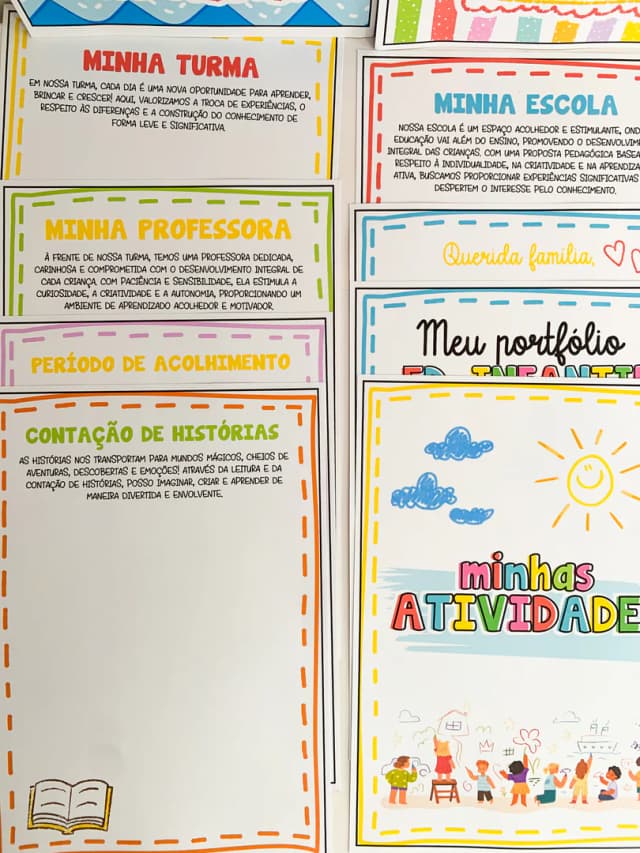 MINHA TURMA
EM NOSSA TURMA, CADA DIA É UMA NOVA OPORTUNIDADE PARA APRENDER,
BRINCAR E CRESCER! AQUI, VALORIZAMOS A TROCA DE EXPERIÊNCIAS, O
RESPEITO ÀS DIFERENÇAS E A CONSTRUÇÃO DO CONHECIMENTO DE
FORMA LEVE E SIGNIFICATIVA.
MINHA PROFESSORA
À FRENTE DE NOSSA TURMA, TEMOS UMA PROFESSORA DEDICADA,
CARINHOSA E COMPROMETIDA COM O DESENVOLVIMENTO INTEGRAL DE
CADA CRIANÇA. COM PACIÊNCIA E SENSIBILIDADE, ELA ESTIMULA A
CURIOSIDADE, A CRIATIVIDADE E A AUTONOMIA, PROPORCIONANDO UM
AMBIENTE DE APRENDIZADO ACOLHEDOR E MOTIVADOR.
PERÍODO DE ACOLHIMENTO
CONTAÇÃO DE HISTÓRIAS
AS HISTÓRIAS NOS TRANSPORTAM PARA MUNDOS MÁGICOS, CHEIOS DE
AVENTURAS, DESCOBERTAS E EMOÇÕES! ATRAVÉS DA LEITURA E DA
CONTAÇÃO DE HISTÓRIAS, POSSO IMAGINAR, CRIAR E APRENDER DE
MANEIRA DIVERTIDA E ENVOLVENTE.
MINHA ESCOLA
NOSSA ESCOLA É UM ESPAÇO ACOLHEDOR E ESTIMULANTE, OND
EDUCAÇÃO VAI ALÉM DO ENSINO, PROMOVENDO O DESENVOLVIM
INTEGRAL DAS CRIANÇAS. COM UMA PROPOSTA PEDAGÓGICA BASEA
RESPEITO À INDIVIDUALIDADE, NA CRIATIVIDADE E NA APRENDIZA
ATIVA, BUSCAMOS PROPORCIONAR EXPERIÊNCIAS SIGNIFICATIVAS
DESPERTEM O INTERESSE PELO CONHECIMENTO.
Querida família,
Meu portfólio
ED. INFANTI
minhas
ATIVIDADE